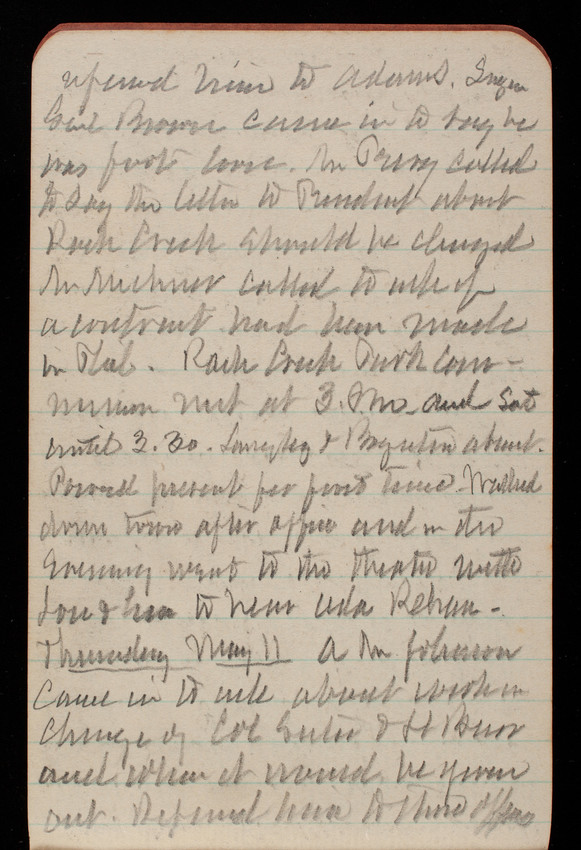 referred him to Adams.
Genl Brown came in to say he
was foot loose. Mr Perry called
to say the letter to President about
Rock Creek should be changed
Mr called to ask if
a contract had been made
in Phil. Rock Creek Park Com-
mission met at 3. P.m. and sat
until 3.30. Langley & Boynton absent.
Powell present for first time. Walked
down town after office and in the
Evening went to the theater with
Lou & to hear Ada Rehan.
Thursday May 11 A Mr Johnson
came in to ask about work in
charge of Col & Lt
and when it would be given
out. Referred him to those officers